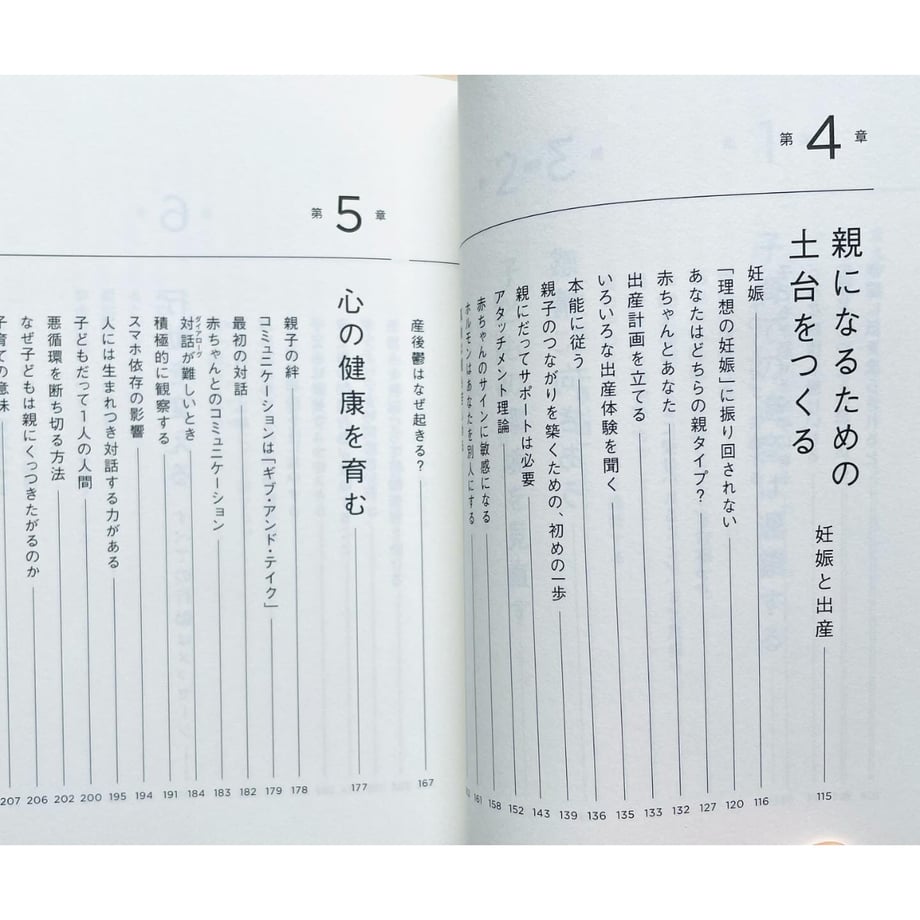 第4章
親になるための
土台をつくる
妊娠と出産 115
妊娠 116
「理想の妊娠」に振り回されない 120
あなたはどちらの親タイプ? 127
赤ちゃんとあなた 132
出産計画を立てる 133
いろいろな出産体験を聞く 135
本能に従う 136
親子のつながりを築くための、初めの一歩 139
親にだってサポートは必要 143
アタッチメント理論 152
赤ちゃんのサインに敏感になる 158
ホルモンはあなたを別人にする 161
産後鬱はなぜ起きる? 167
第5章
心の健康を育む 177
親子の絆 178
コミュニケーションは「ギブ・アンド・テイク」 179
最初の対話 182
赤ちゃんとのコミュニケーション 183
ダイアローグ
対話が難しいとき 184
積極的に観察する 191
スマホ依存の影響 194
人には生まれつき対話する力がある 195
子どもだって1人の人間 200
悪循環を断ち切る方法 202
なぜ子どもは親にくっつきたがるのか 206
子育ての意味 207